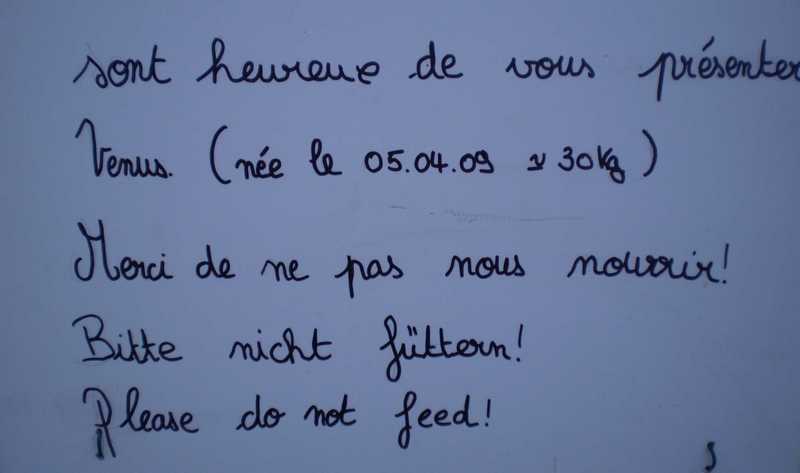 sont heureux de vous présenter
Venus. (née le 05.04.09 ≈ 30kg)
Merci de ne pas nous nourrir!
Bitte nicht füttern!
Please do not feed!